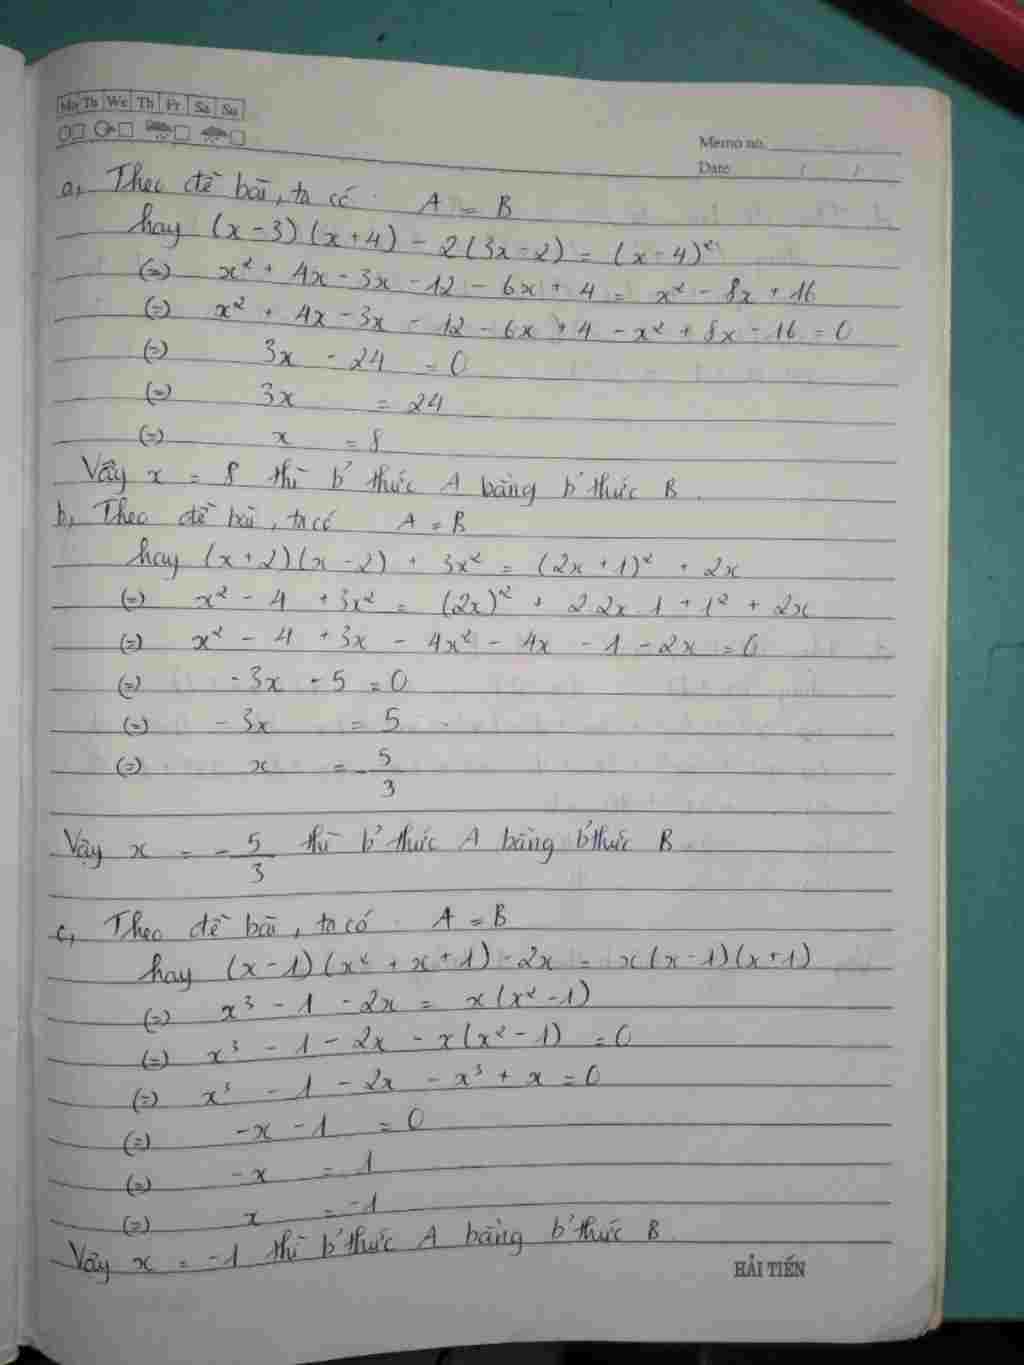 Mo Tu We Th Fr Sa Su
Memo no.
Date / /
a, Theo đề bài, ta có A = B
hay (x - 3)(x + 4) - 2(3x - 2) = (x - 4)²
(=) x² + 4x - 3x - 12 - 6x + 4 = x² - 8x + 16
(=) x² + 4x - 3x - 12 - 6x + 4 - x² + 8x - 16 = 0
(=) 3x - 24 = 0
(=) 3x = 24
(=) x = 8
Vậy x = 8 thì b' thức A bằng b' thức B.
b, Theo đề bài, ta có A = B
hay (x + 2)(x - 2) + 3x² = (2x + 1)² + 2x
(=) x² - 4 + 3x² = (2x)² + 2.2x.1 + 1² + 2x
(=) x² - 4 + 3x - 4x² - 4x - 1 - 2x = 0
(=) -3x - 5 = 0
(=) -3x = 5
(=) x = -5/3
Vậy x = -5/3 thì b' thức A bằng b' thức B
c, Theo đề bài, ta có A = B
hay (x - 1)(x² + x + 1) - 2x = x(x - 1)(x + 1)
(=) x³ - 1 - 2x = x(x² - 1)
(=) x³ - 1 - 2x - x(x² - 1) = 0
(=) x³ - 1 - 2x - x³ + x = 0
(=) -x - 1 = 0
(=) -x = 1
(=) x = -1
Vậy x = -1 thì b' thức A bằng b' thức B.
HẢI TIẾN